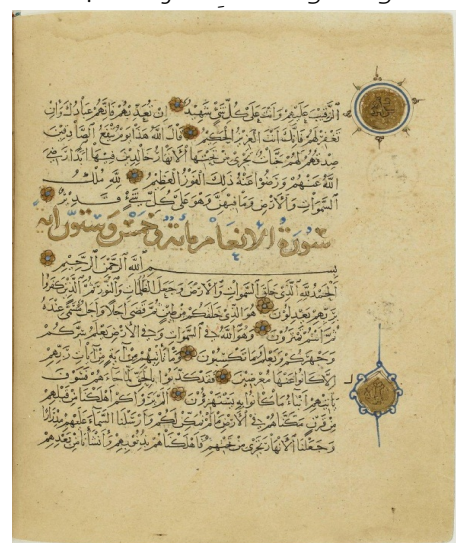 الرقيب عليهم وانت على كل شئ شهيد ان تعذبهم فانهم عبادك وان
تغفر لهم فانك انت العزيز الحكيم قال الله هذا يوم ينفع الصادقين
صدقهم لهم جنات تجري من تحتها الانهار خالدين فيها ابدا رضي
الله عنهم ورضوا عنه ذلك الفوز العظيم لله ملك
السموات والارض وما فيهن وهو على كل شئ قدير
سورة الانعام مائة وخمس وستون اية
بسم الله الرحمن الرحيم
الحمد لله الذي خلق السموات والارض وجعل الظلمات والنور ثم الذين كفروا
بربهم يعدلون هو الذي خلقكم من طين ثم قضى اجلا واجل مسمى عنده
ثم انتم تمترون وهو الله في السموات وفي الارض يعلم سركم
وجهركم ويعلم ما تكسبون وما تاتيهم من اية من ايات ربهم
الا كانوا عنها معرضين فقد كذبوا بالحق لما جاءهم فسوف
ياتيهم انباء ما كانوا به يستهزؤن الم يروا كم اهلكنا من قبلهم
من قرن مكناهم في الارض ما لم نمكن لكم وارسلنا السماء عليهم مدرارا
وجعلنا الانهار تجري من تحتهم فاهلكناهم بذنوبهم وانشأنا من بعدهم